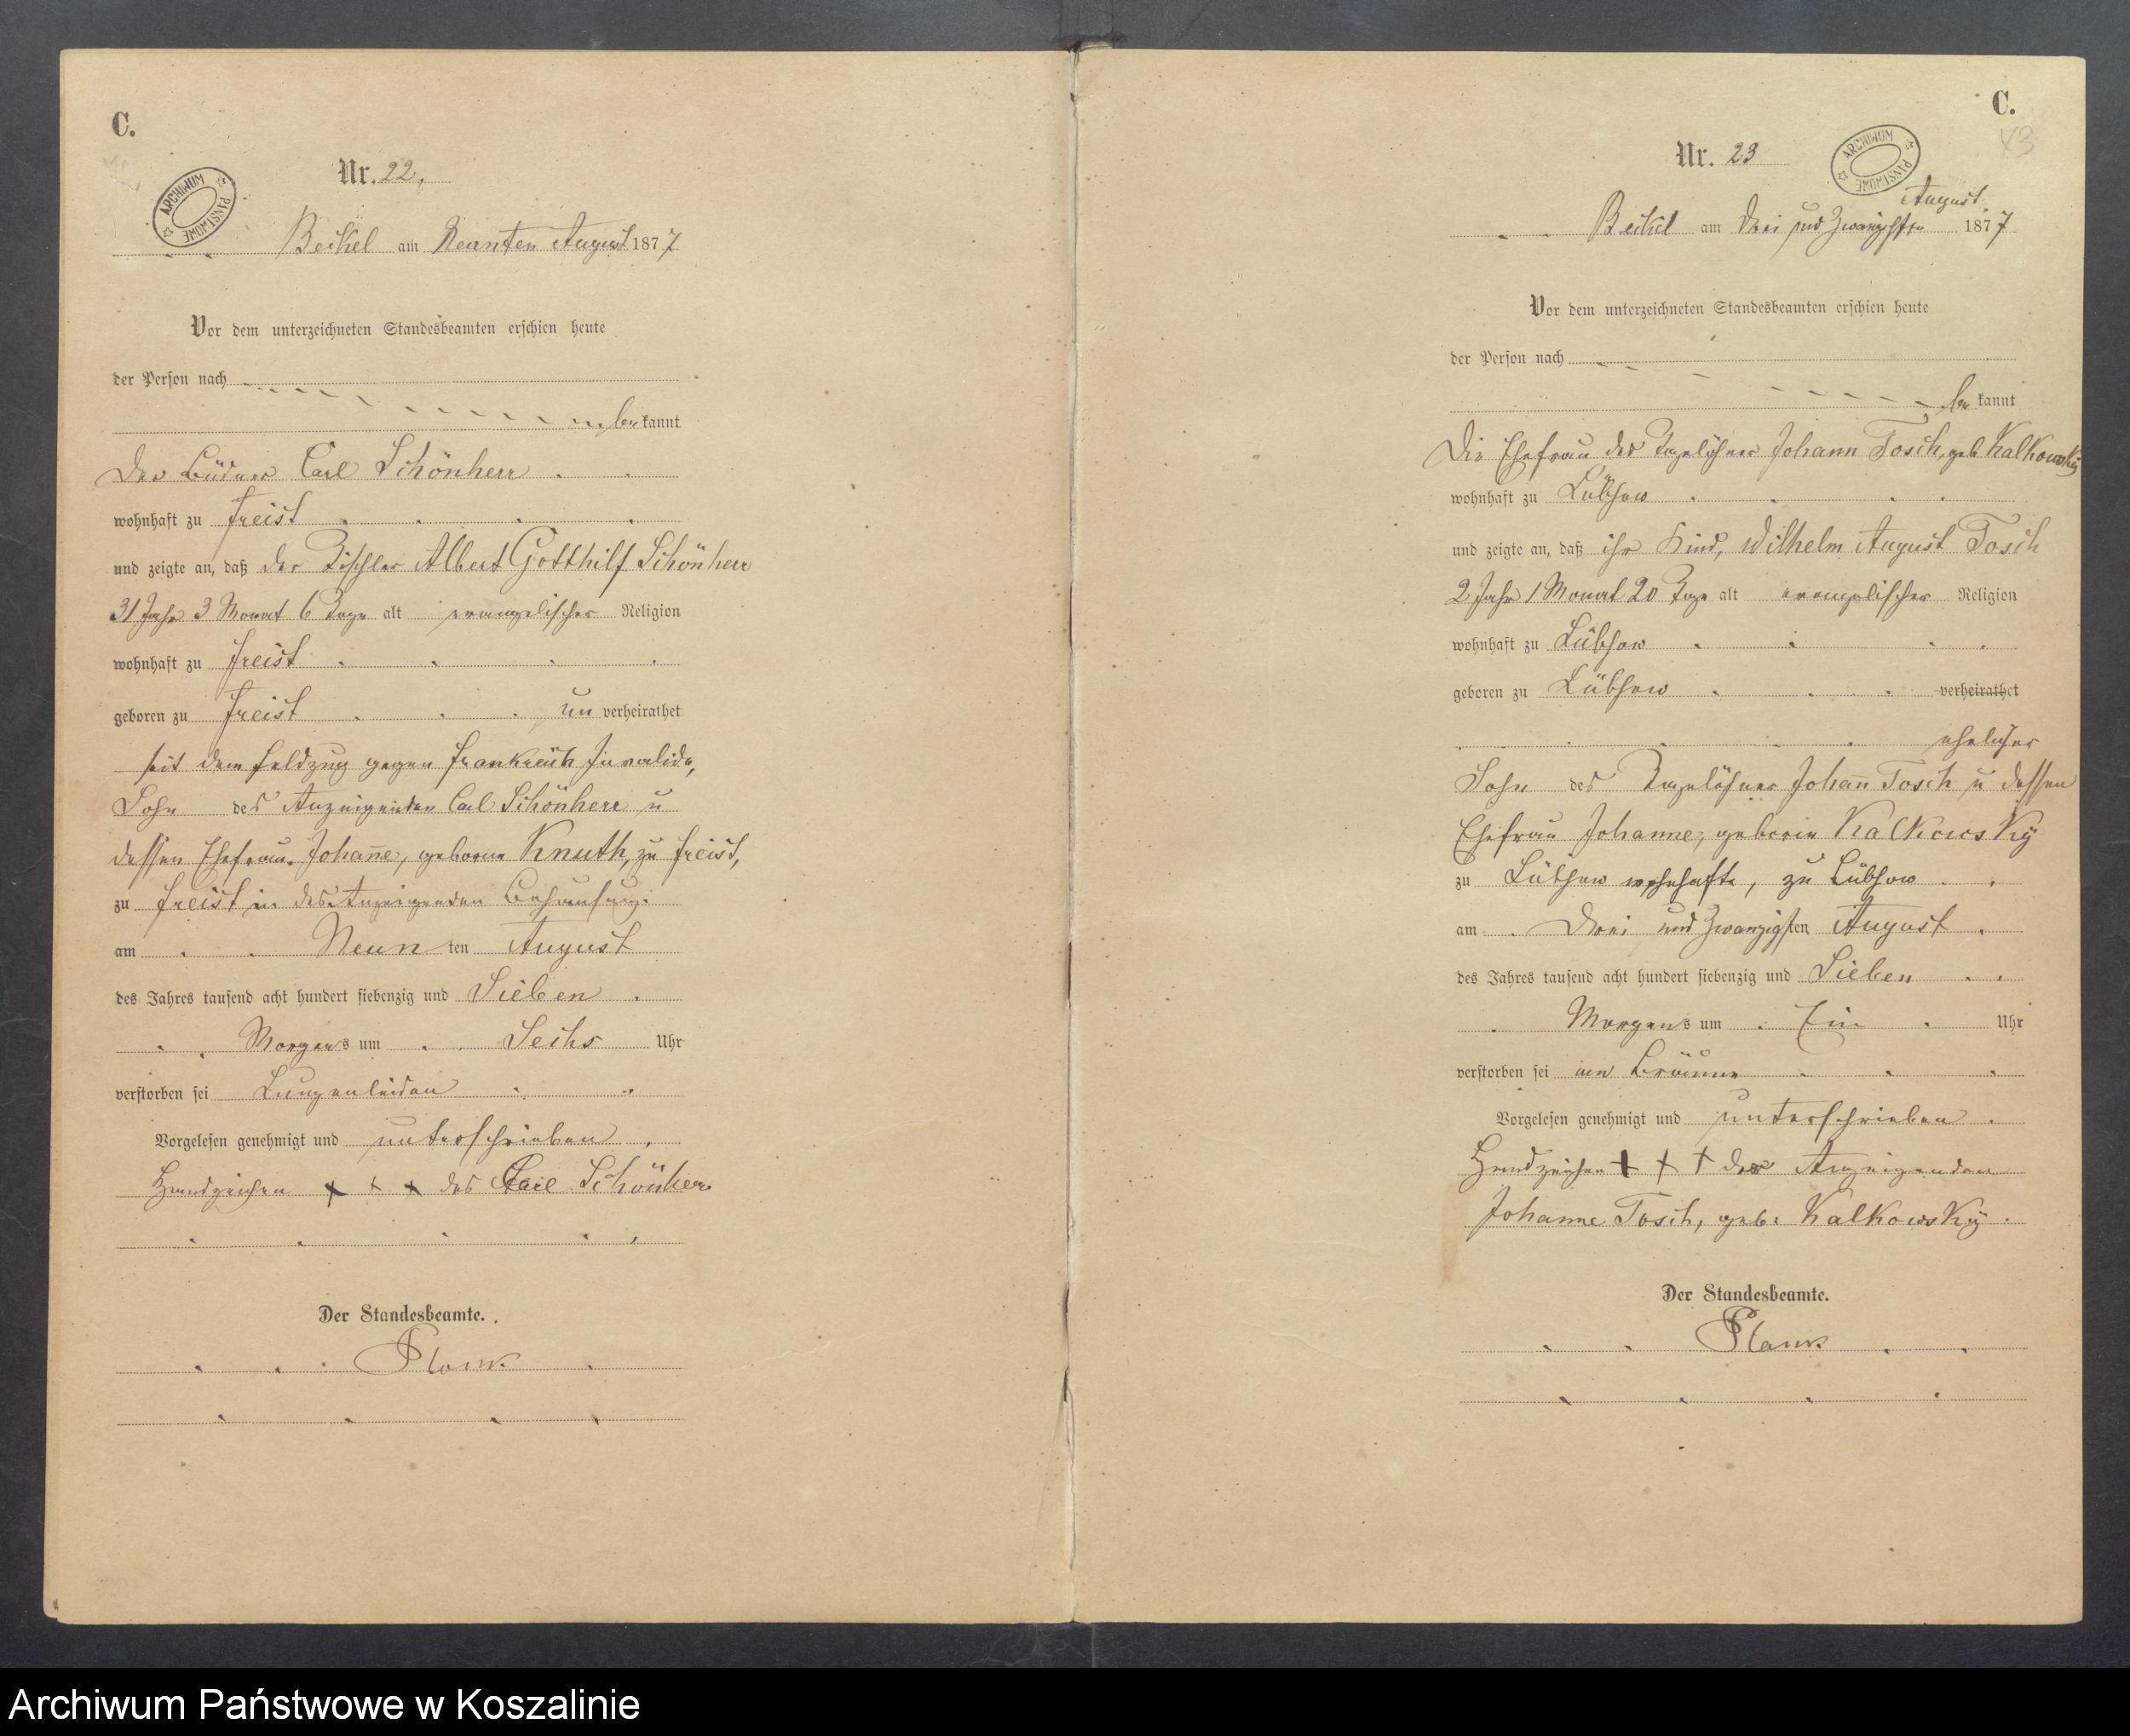 C.
Nr. 22.
ARCHIWUM PAŃSTWOWE
Beckel am Neunten August 1877
Vor dem unterzeichneten Standesbeamten erschien heute
der Person nach
be kannt
Der Büdner Carl Schönherr
wohnhaft zu Freist
und zeigte an, daß der Tischler Albert Gotthilf Schönherr
31 Jahr 3 Monat 6 Tage alt evangelischer Religion
wohnhaft zu Freist
geboren zu Freist un verheirathet
seit dem Feldzug gegen Frankreich Invalide,
Sohn des Anzeigenden Carl Schönherr u
dessen Ehefrau Johan̄e, geborne Knuth, zu Freist,
zu Freist in des Anzeigenden Behausung.
am Neun ten August
des Jahres tausend acht hundert siebenzig und Sieben
Morgens um Sechs Uhr
verstorben sei Lungenleiden
Vorgelesen genehmigt und unterschrieben
Handzeichen + + + des Carl Schönherr
Der Standesbeamte.
C.
Nr. 23
ARCHIWUM PAŃSTWOWE
43
August
Beckel am Drei und Zwanzigsten 1877
Vor dem unterzeichneten Standesbeamten erschien heute
der Person nach
be kannt
Die Ehefrau des Tagelöhner Johann Tosch, geb Kalkowsky
wohnhaft zu Lübsow
und zeigte an, daß ihr Kind, Wilhelm August Tosch
2 Jahr 1 Monat 20 Tage alt evangelischer Religion
wohnhaft zu Lübsow
geboren zu Lübsow verheirathet
ehelicher
Sohn des Tagelöhner Johan̄ Tosch u dessen
Ehefrau Johanne, geborne Kalkowsky
zu Lübsow wohnhaft, zu Lübsow
am Drei und Zwanzigsten August
des Jahres tausend acht hundert siebenzig und Sieben
Morgens um Ein Uhr
verstorben sei an Bräune
Vorgelesen genehmigt und unterschrieben
Handzeichen + + + der Anzeigenden
Johanne Tosch, geb: Kalkowsky.
Der Standesbeamte.
Archiwum Państwowe w Koszalinie